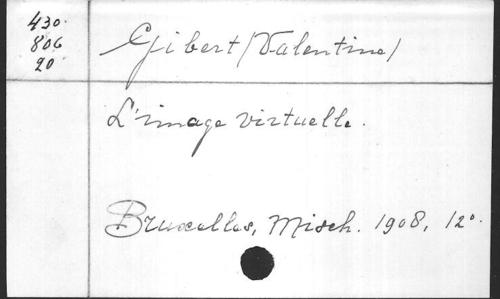 430.
806
20
Gibert (Valentine)
L'image virtuelle.
Bruxelles, Misch. 1908, 12°.